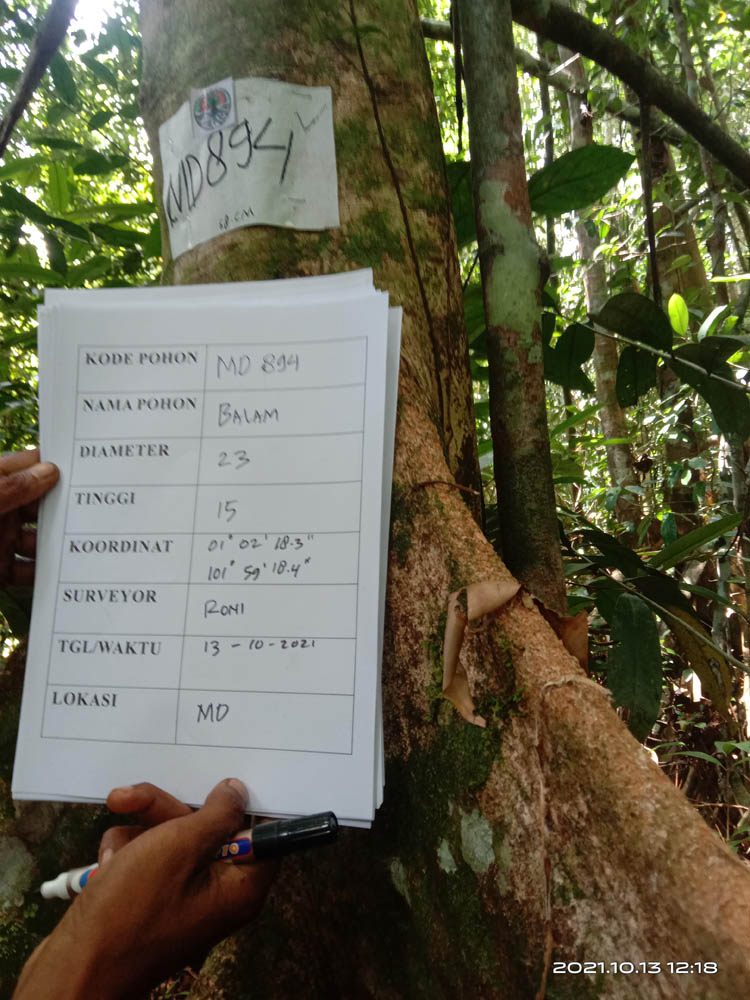 MD894
68 CM
KODE POHON MD 894
NAMA POHON BALAM
DIAMETER 23
TINGGI 15
KOORDINAT 01° 02' 18.3"
101° 59' 18.4"
SURVEYOR RONI
TGL/WAKTU 13-10-2021
LOKASI MD
2021.10.13 12:18